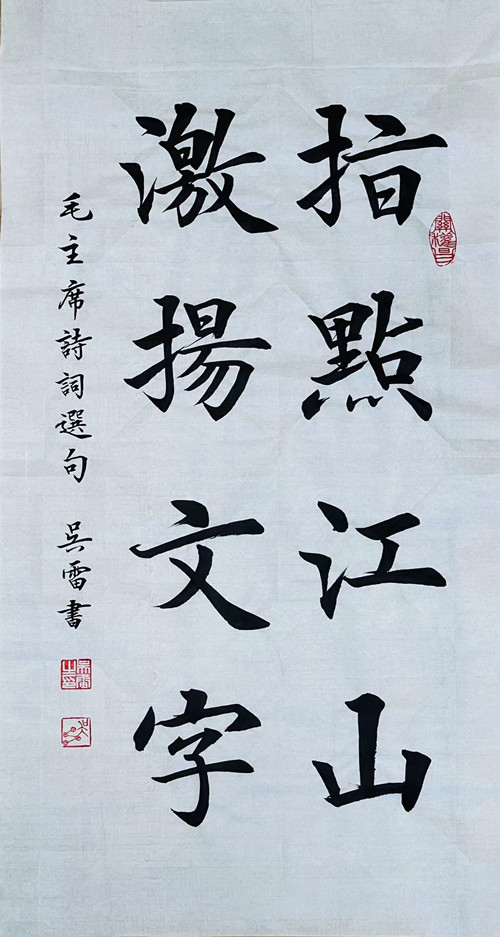 指點江山
激揚文字
毛主席詩詞選句 吳雷書